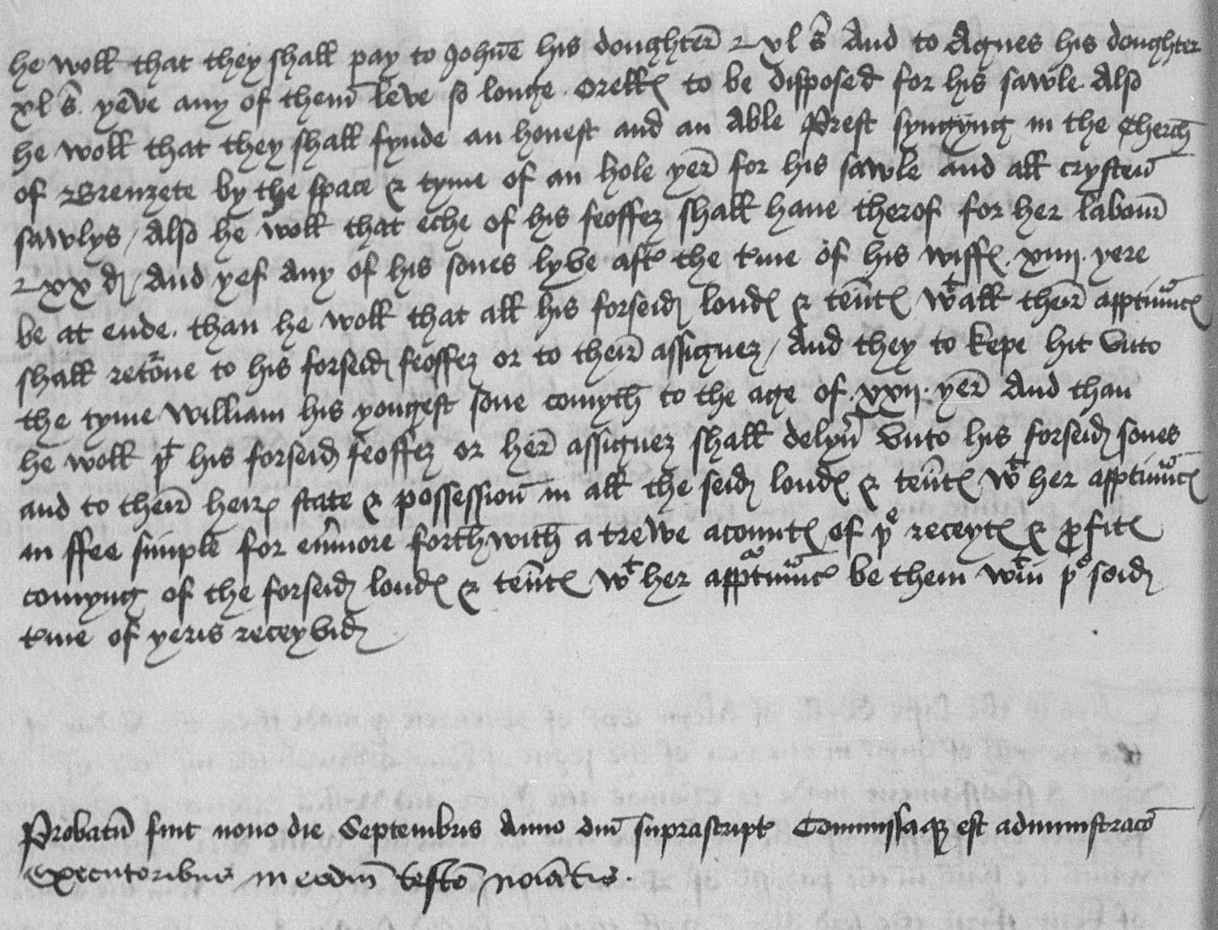 he woll that they shall pay to Johne his doughter xl s̄ And to Agnes his doughter
xl s̄. yeve any of them leve so longe. orell to be disposed for his sawle. Also
he woll that they shall fynde an honest and an able Prest syngyng in the Cherch
of Brenzete by the space & tyme of an hole yer for his sawle and all crysten
sawlys / Also he woll that eche of his feoffez shall have therof for her labour
xx d. And yef any of his sones lyve aft the tme of his wiff. xiiij. yere
be at ende. than he woll that all his forseid lond & tent wt all their apptinnct
shall retorne to his forseid feoffez or to their assignez / And they to kepe hit unto
the tyme William his yongest sone comyth to the age of .xxij. yer And than
he woll pt his forseid feoffez or her assignez shall delyu unto his forseid sones
and to their heir state & possession in all the seid lond & tent wt her apptinnct
in ffee simple for eumore forth with a trewe acount of pe receyt & profit
comyng of the forseid lond & tent wt her apptinnct be them wtin pe seid
tme of yeris receyvid
Probatu fuit nono die Septembris Anno dni suprascript Commissaq est administraco
executoribus in eodm testo noiatis.